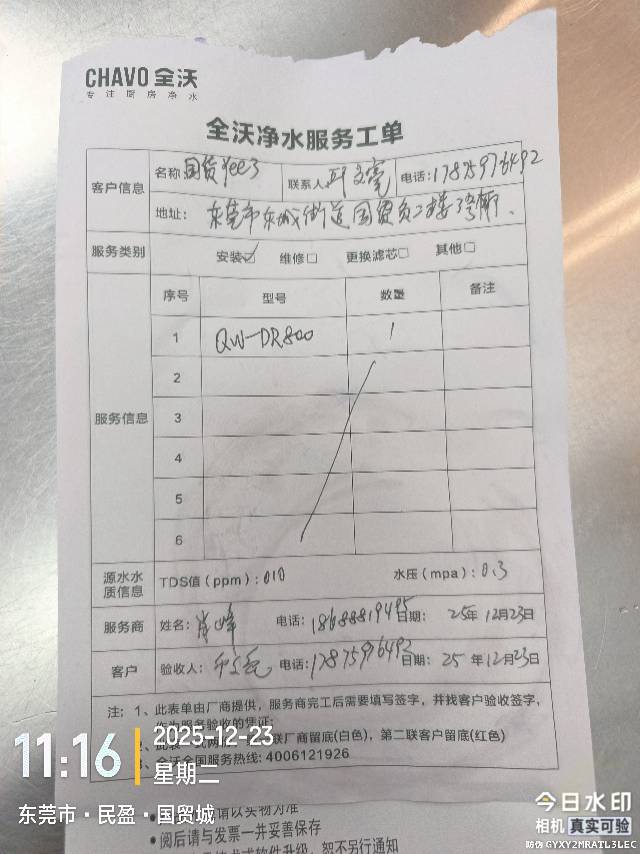 CHAVO 全沃
专注厨房净水
全沃净水服务工单
客户信息 名称 国贸Yee3 联系人 叶文亮 电话: 17875976492
地址: 东莞市东城街道国贸负二楼3号厨、
服务类别 安装☑ 维修□ 更换滤芯□ 其他□
服务信息 序号 型号 数量 备注
1 QW-DR800 1
2
3
4
5
6
源水水质信息 TDS值(ppm): 010 水压(mpa): 0.3
服务商 姓名: 肖峰 电话: 日期: 25年12月23日
客户 验收人: 电话: 17875976492 日期: 25年12月23日
注: 1、此表单由厂商提供, 服务商完工后需要填写签字, 并找客户验收签字,
作为服务验收的凭证;
联厂商留底(白色), 第二联客户留底(红色)
3、全沃全国服务热线: 4006121926
请以实物为准
• 阅后请与发票一并妥善保存
或软件升级, 恕不另行通知
11:16 2025-12-23
星期二
东莞市·民盈·国贸城
今日水印
相机 真实可验
防伪 GYXY2MRATL3LEC